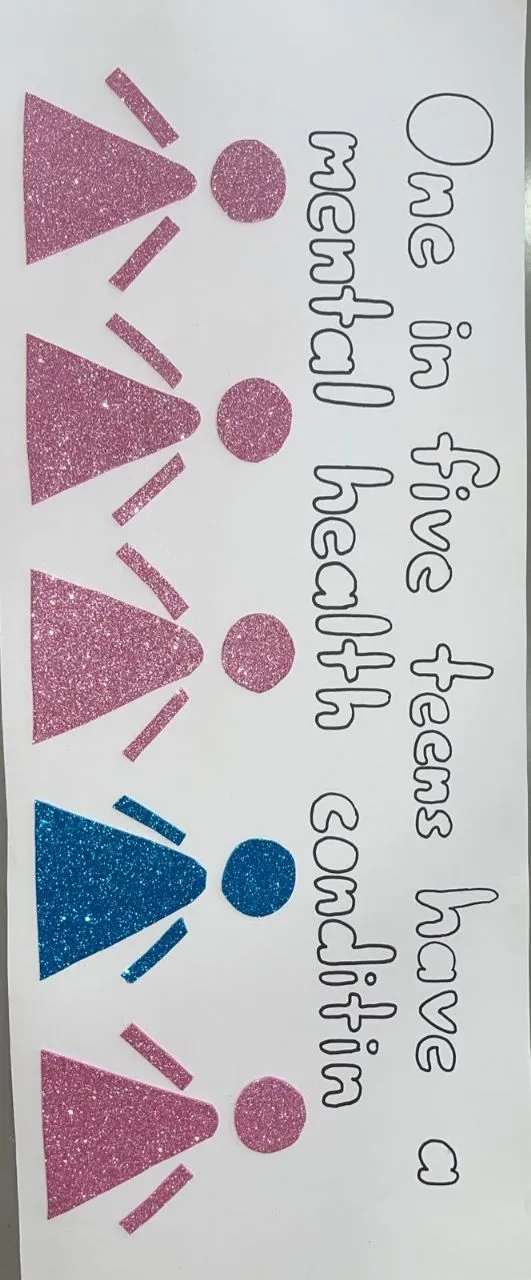 One in five teens have a
mental health conditin